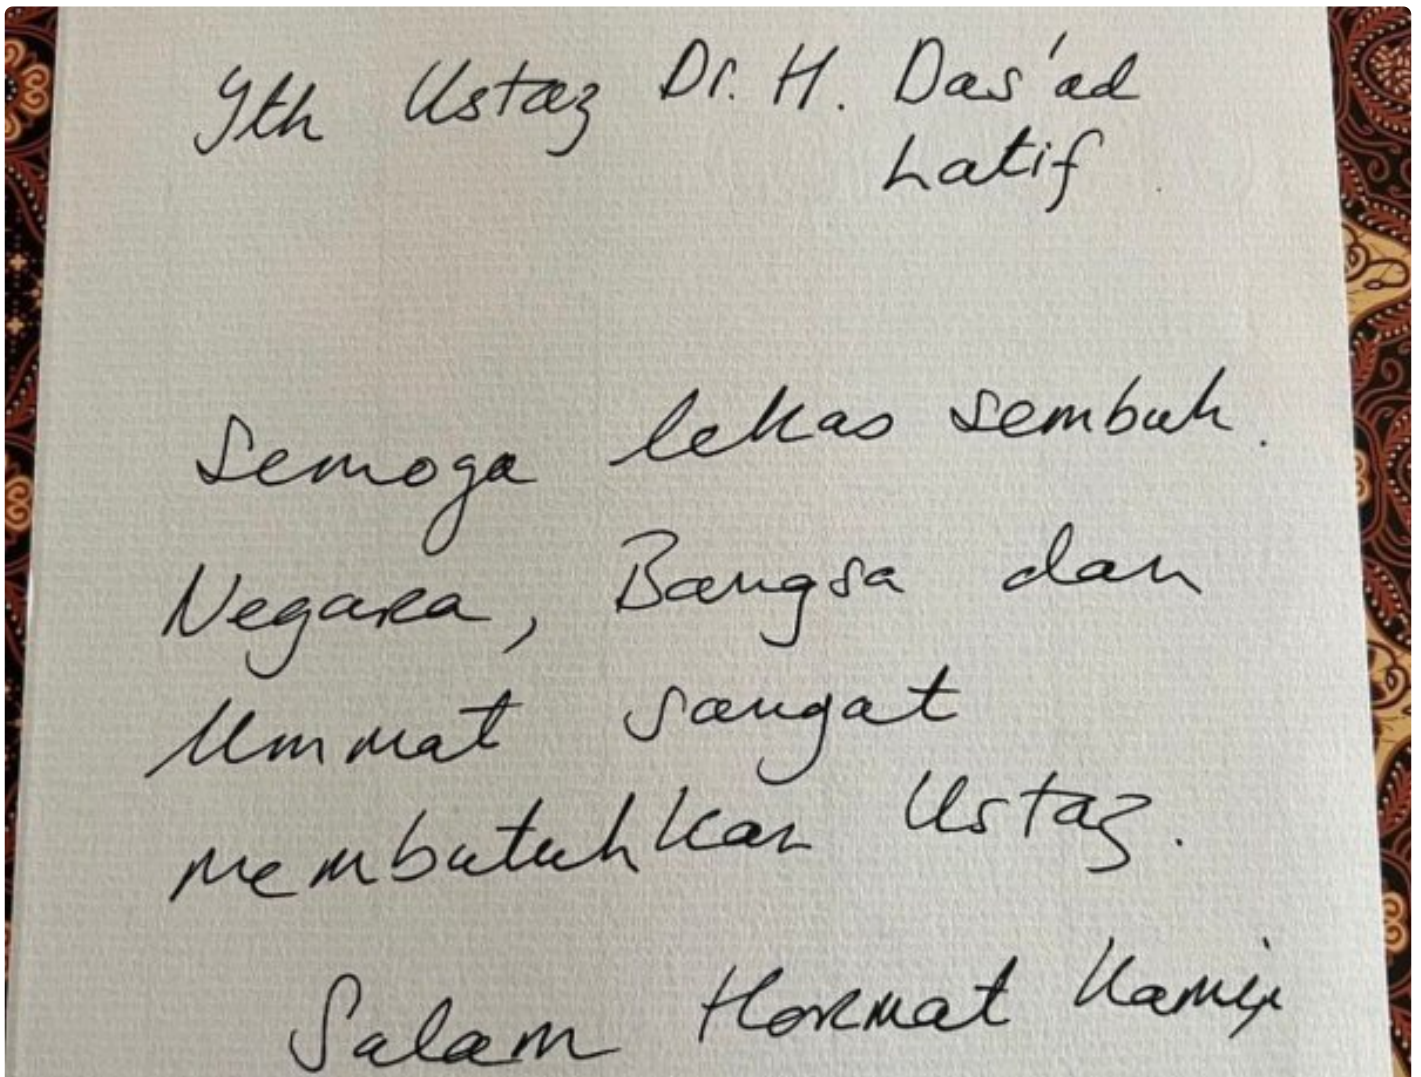 Yth Ustaz Dr. H. Das'ad
Latif
Semoga lekas sembuh.
Negara, Bangsa dan
Ummat sangat
membutuhkan Ustaz.
Salam Hormat Kami